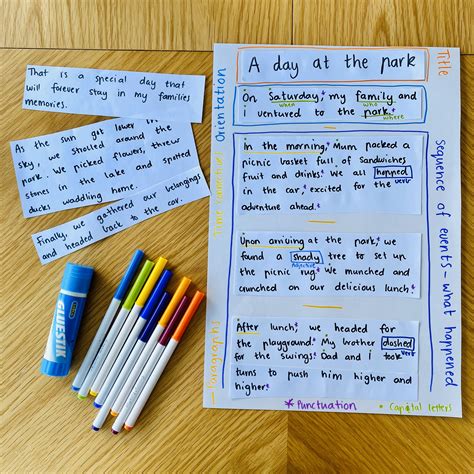 That is a special day that
will forever stay in my families
memories.
As the sun got lower in the
sky, we strolled around the
park. We picked flowers, threw
stones in the lake and spotted
ducks waddling home.
Finally, we gathered our belongings
and headed back to the car.
GLUESTIK
Title
A day at the park
Orientation
On Saturday, my family and
when
who
i ventured to the park.
where
Time connectives
Sequence of events - what happened
In the morning, Mum packed a
picnic basket full of sandwiches
fruit and drinks. We all hopped
verb
in the car, excited for the
adventure ahead.
Upon arriving at the park, we
found a shady tree to set up
adjective
the picnic rug. We munched and
crunched on our delicious lunch.
Paragraphs
After lunch, we headed for
the playground. My brother dashed
verb
for the swings. Dad and i took
turns to push him higher and
higher.
* Punctuation
Capital letters